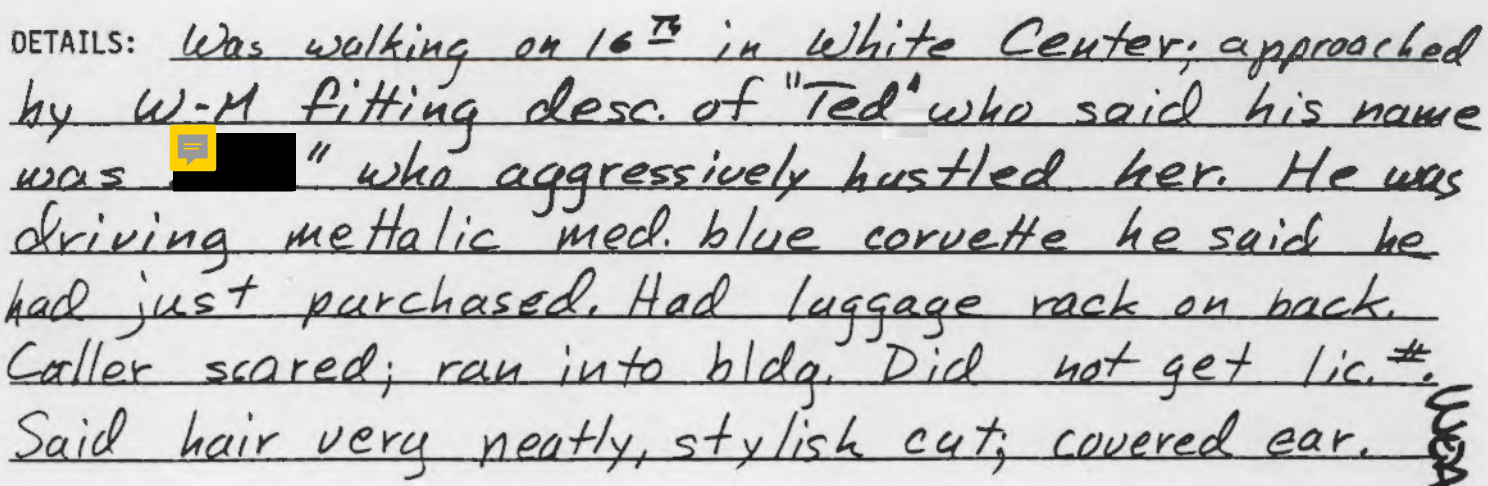 DETAILS: Was walking on 16th in White Center; approached
by W-M fitting desc. of "Ted" who said his name
was " who aggressively hustled her. He was
driving mettalic med. blue corvette he said he
had just purchased. Had luggage rack on back.
Caller scared; ran into bldg. Did not get lic.#.
Said hair very neatly, stylish cut; covered ear.